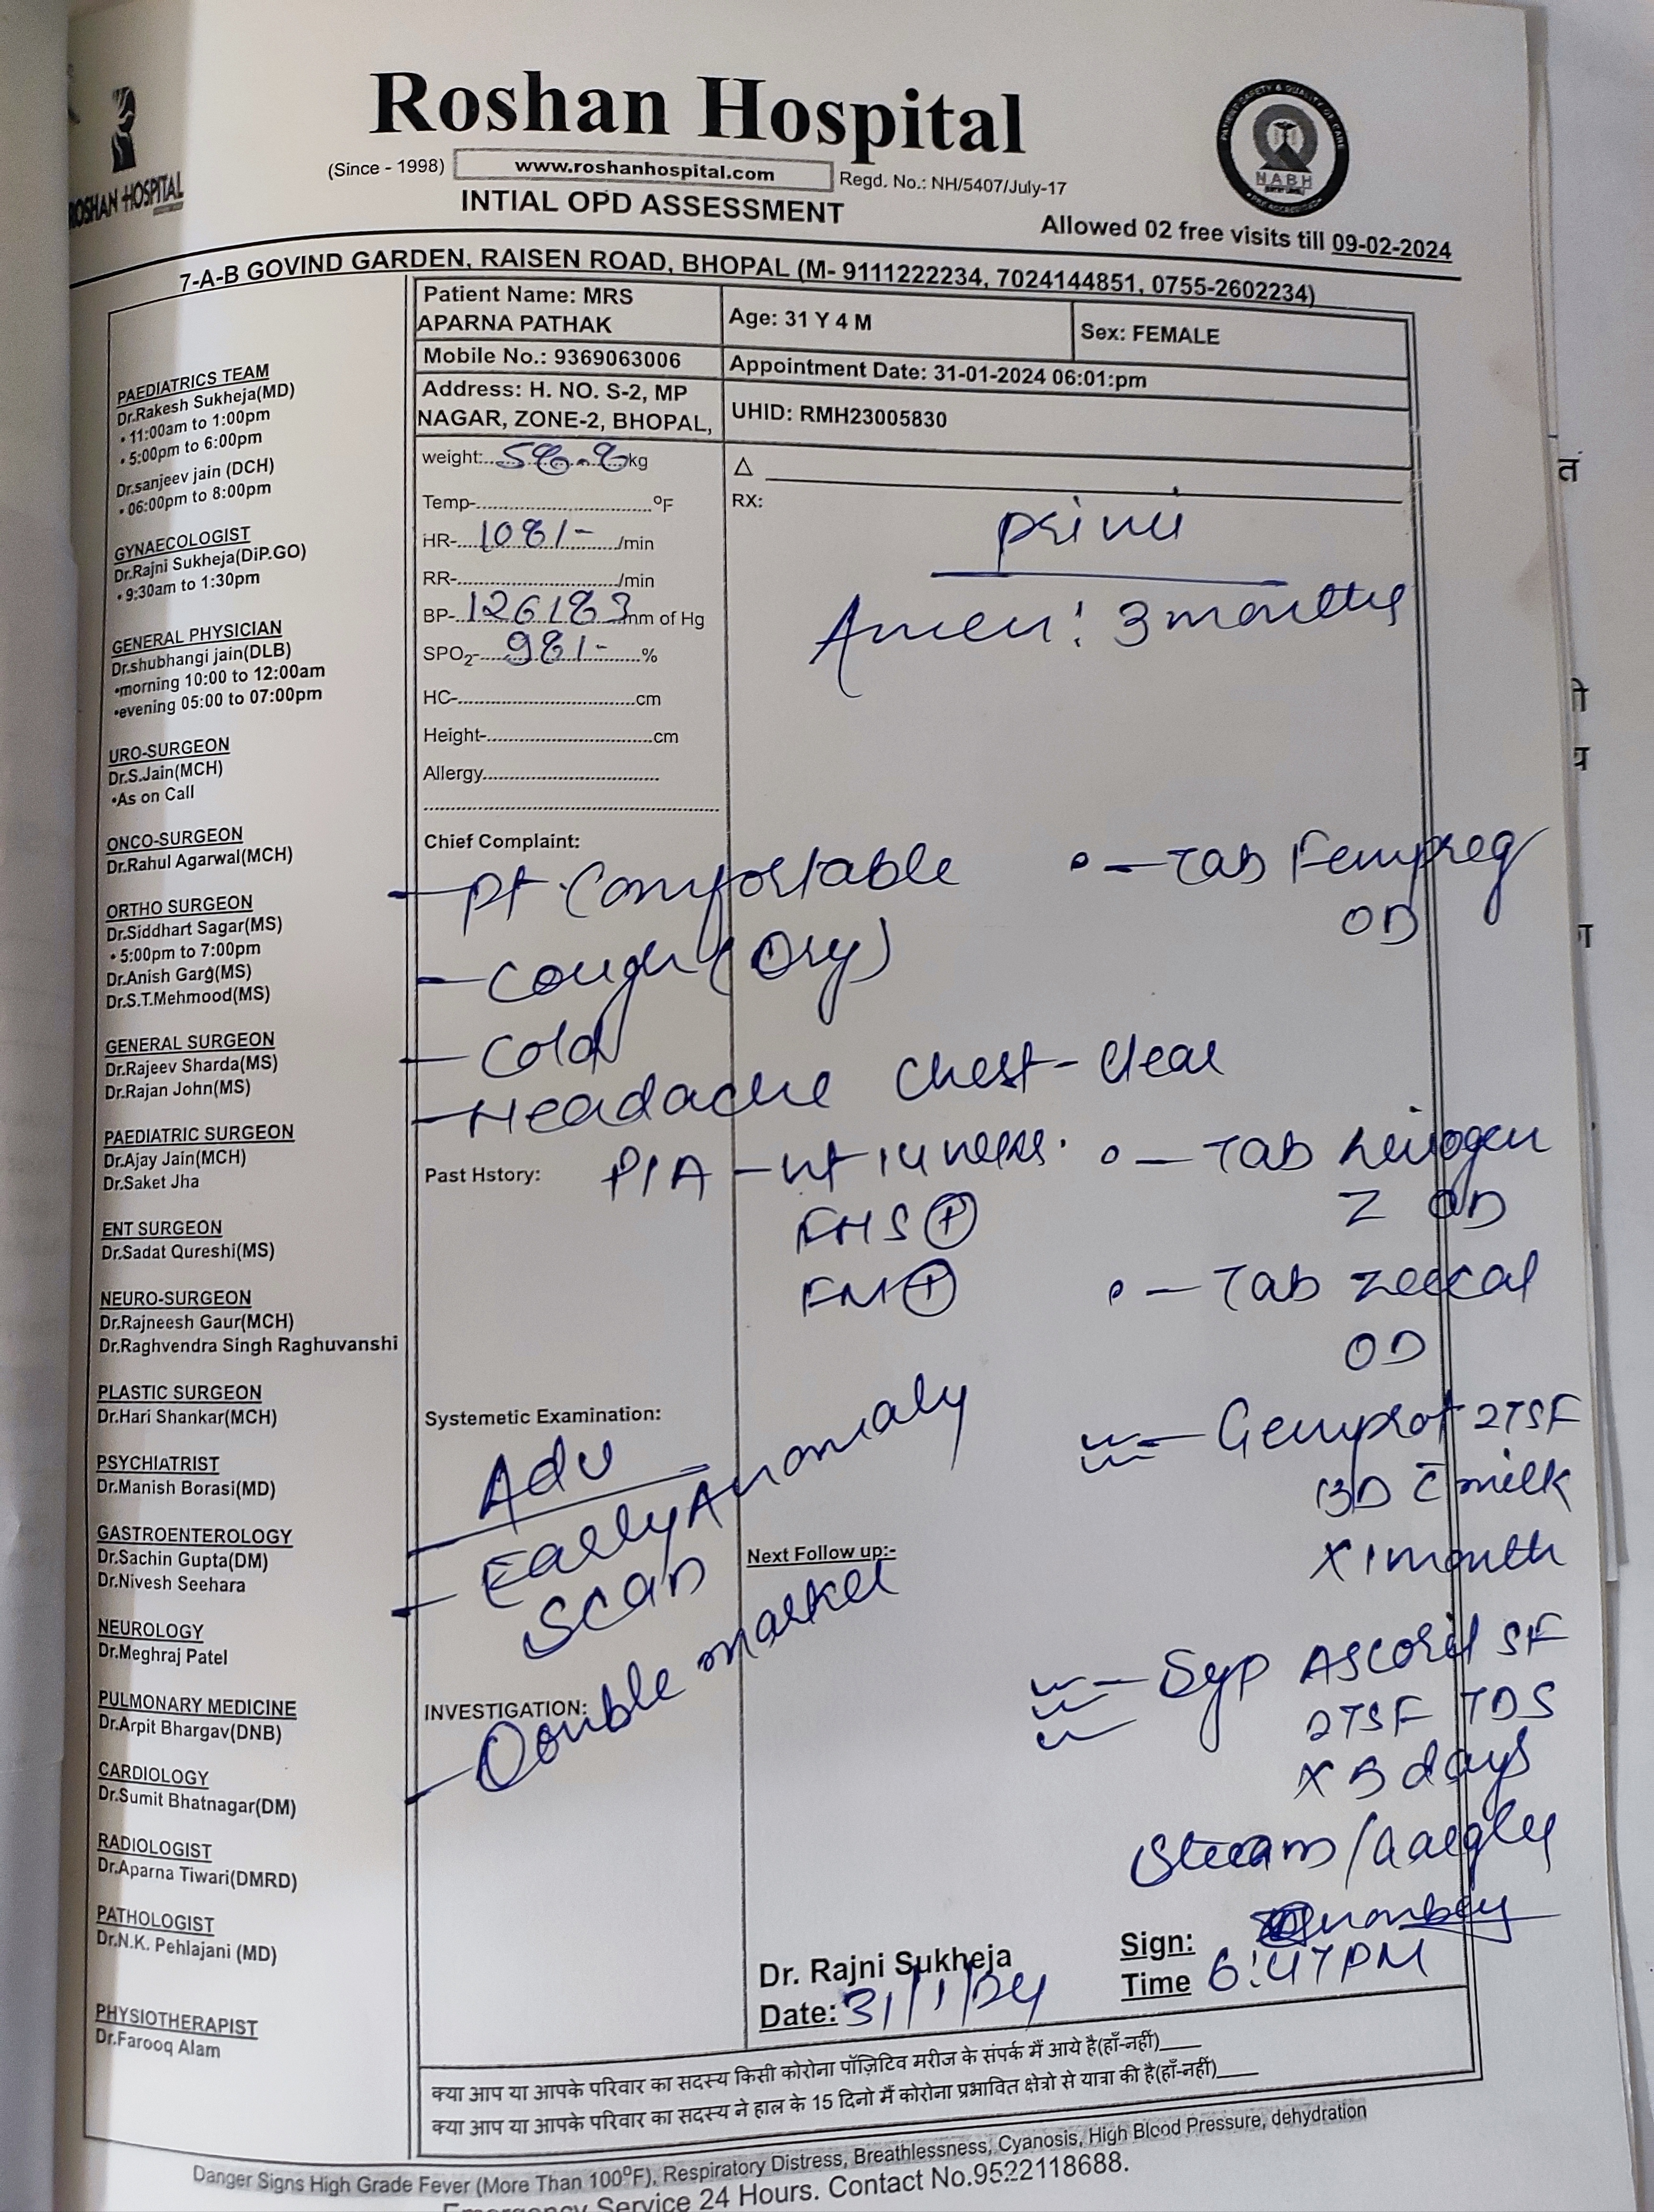 Roshan Hospital
(Since - 1998) www.roshanhospital.com Regd. No.: NH/5407/July-17
ROSHAN HOSPITAL
PATIENT SAFETY & QUALITY OF CARE
NABH
INTIAL OPD ASSESSMENT
Allowed 02 free visits till 09-02-2024
7-A-B GOVIND GARDEN, RAISEN ROAD, BHOPAL (M- 9111222234, 7024144851, 0755-2602234)
PAEDIATRICS TEAM
Dr.Rakesh Sukheja(MD)
• 11:00am to 1:00pm
• 5:00pm to 6:00pm
Dr.sanjeev jain (DCH)
• 06:00pm to 8:00pm
GYNAECOLOGIST
Dr.Rajni Sukheja(DiP.GO)
• 9:30am to 1:30pm
GENERAL PHYSICIAN
Dr.shubhangi jain(DLB)
•morning 10:00 to 12:00am
•evening 05:00 to 07:00pm
URO-SURGEON
Dr.S.Jain(MCH)
•As on Call
ONCO-SURGEON
Dr.Rahul Agarwal(MCH)
ORTHO SURGEON
Dr.Siddhart Sagar(MS)
• 5:00pm to 7:00pm
Dr.Anish Garg(MS)
Dr.S.T.Mehmood(MS)
GENERAL SURGEON
Dr.Rajeev Sharda(MS)
Dr.Rajan John(MS)
PAEDIATRIC SURGEON
Dr.Ajay Jain(MCH)
Dr.Saket Jha
ENT SURGEON
Dr.Sadat Qureshi(MS)
NEURO-SURGEON
Dr.Rajneesh Gaur(MCH)
Dr.Raghvendra Singh Raghuvanshi
PLASTIC SURGEON
Dr.Hari Shankar(MCH)
PSYCHIATRIST
Dr.Manish Borasi(MD)
GASTROENTEROLOGY
Dr.Sachin Gupta(DM)
Dr.Nivesh Seehara
NEUROLOGY
Dr.Meghraj Patel
PULMONARY MEDICINE
Dr.Arpit Bhargav(DNB)
CARDIOLOGY
Dr.Sumit Bhatnagar(DM)
RADIOLOGIST
Dr.Aparna Tiwari(DMRD)
PATHOLOGIST
Dr.N.K. Pehlajani (MD)
PHYSIOTHERAPIST
Dr.Farooq Alam
Patient Name: MRS
APARNA PATHAK
Age: 31 Y 4 M
Sex: FEMALE
Mobile No.: 9369063006
Appointment Date: 31-01-2024 06:01:pm
Address: H. NO. S-2, MP
NAGAR, ZONE-2, BHOPAL,
UHID: RMH23005830
weight: kg
Temp- °F
HR- 108/- /min
RR- /min
BP- 126/83 mm of Hg
SPO2- 98/- %
HC- cm
Height- cm
Allergy
Δ
RX:
primi
Amen: 3 months
Chief Complaint:
- Pt. Comfortable
- Cough (Dry)
- Cold
- Headache Chest-clear
Past Hstory: P/A - ut 14 weeks.
FHS ⊕
FM ⊕
- Tab Fempreg
OD
- Tab
Z OD
- Tab Zeecal
OD
- Gemprot 2TSF
BD c̄ milk
x 1 month
- Syp Ascoril SF
2TSF TDS
x 5 days
Steam/Gargley
Systemetic Examination:
Adv
- Early Anomaly
Scan
INVESTIGATION:
- Double marker
Next Follow up:-
Dr. Rajni Sukheja
Sign:
Date: 31/1/24
Time 6:47PM
क्या आप या आपके परिवार का सदस्य किसी कोरोना पॉज़िटिव मरीज के संपर्क मैं आये है(हाँ-नहीं)____
क्या आप या आपके परिवार का सदस्य ने हाल के 15 दिनो मैं कोरोना प्रभावित क्षेत्रो से यात्रा की है(हाँ-नहीं)____
Danger Signs High Grade Fever (More Than 100°F), Respiratory Distress, Breathlessness, Cyanosis, High Blood Pressure, dehydration
Emergency Service 24 Hours. Contact No.9522118688.